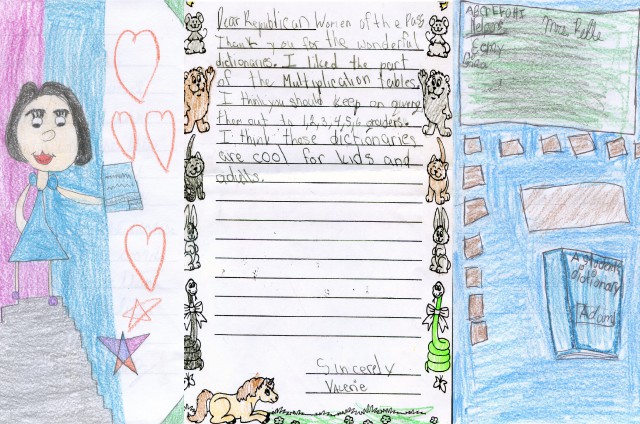 Dear Republican Women of the Pas
Thank you for the wonderful
dictionaries. I liked the part
of the Multiplication tables.
I think you should keep on giving
them out to 1,2,3,4,5,6 graders.
I think those dictionaries
are cool for kids and
adults.
Sincerely
Valerie
ABCDEFGHI
Helpers
Mrs. Bells
Sara
A students
Dictionary
Adam